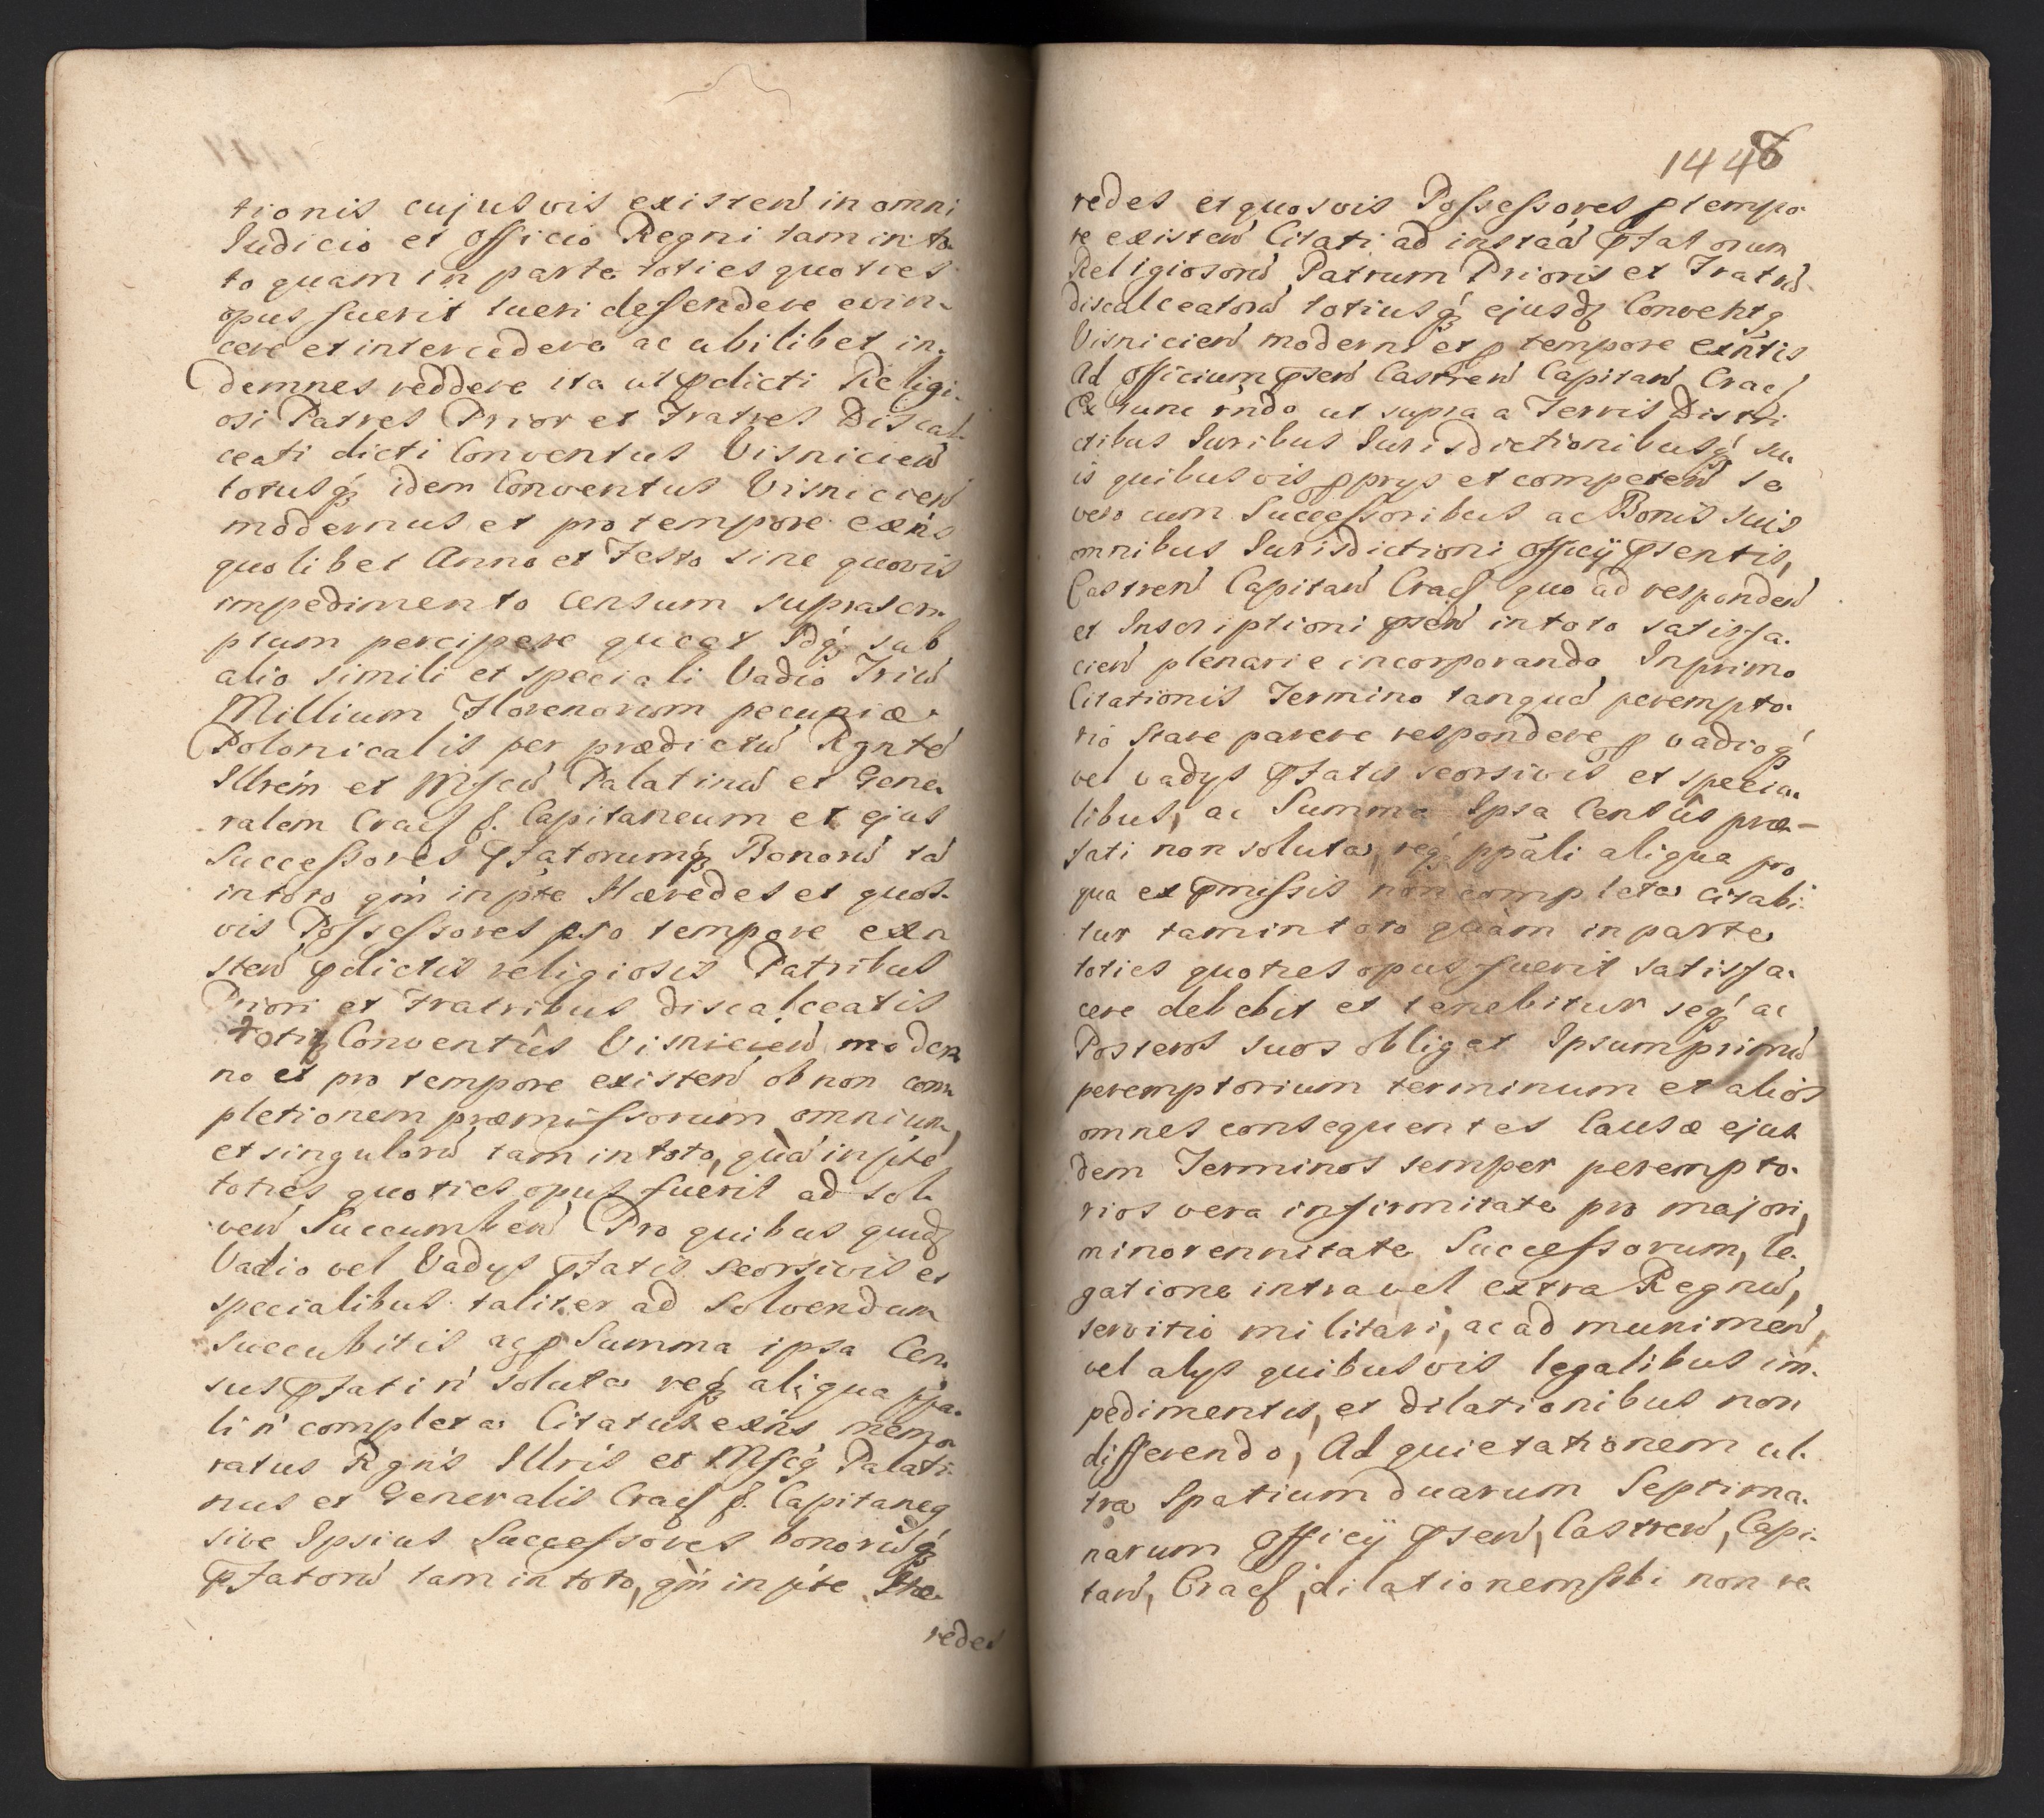 tionis cujusvis existen̄ in omni
Iudicio et Officio Regni tam in to
to quam in parte toties quoties
opus fuerit tueri defendere evin-
cere et intercedere ac ubilibet in-
demnes reddere ita ut p̄dicti Religi-
osi Patres Prior et Fratres Discal-
ceati dicti Conventus Visnicien̄
totusq́ꝫ idem Conventus Visnicien̄
modernus et pro tempore exn̄s
quolibet Anno et Festo sine quovis
impedimento censum suprascri-
ptum percipere queat Idq́ꝫ sub
alio simili et speciali Vadio Triū
Millium Florenorum pecuniæ
Polonicalis per prædictū Rgnte᷆
Illrem̄ et Mfcū Palatinū et Gene-
ralem Cracſ S. Capitaneum et ejus
Successores p̄fatorumq́ꝫ Bonorū tā
in toto qm̄ in pte Hæredes et quos-
vis Possessores pro tempore exn
sten̄ p̄dictis religiosis Patribus
Priori et Fratribus discalceatis
totiꝗ Conventûs Visnicien̄ moder
no et pro tempore existen̄ ob non com
pletionem præmissorum omnium
et singulorū tam in toto, quā in pte
toties quoties opus fuerit ad sol-
ven̄ Succumben̄ Pro quibus quidꝫ
Vadio vel Vadys p̄fatis seorsivis et
specialibus taliter ad Solvendum
succubitis ac p Summa ipsa Cen-
sus p̄fati n̄ soluta req́ꝫ aliqua ppa-
li n̄ completa Citatus exn̄s memo
ratus Rgn̄s Illris̄ et Mfcꝗ Palati-
nus et Generalis Cracſ S. Capitaneꝗ
sive Ipsius Successores bonorūq́ꝫ
p̄fatorū tam in toto, qm̄ in pte Hæ-
redes
1448
redes et quosvis Possessores p tempo-
re existen̄ Citati ad instaā p̄fatorum
Religiosorū Patrum Prioris et Fratrū
discalceatorū totiusq́ꝫ ejusdꝫ Conventꝗ
Visnicien̄ moderni et p tempore exn̄tis
Ad Officium p̄sen̄ Castren̄ Capitan̄ Cracſ
Ex tunc rn̄do ut supra a Terris Distri
ctibus Iuribus Iurisdictionibusq́ꝫ su
is quibusvis pprys et competen̄ se
vero cum Successoribus ac Bonis suis
omnibus Iurisdictioni Officÿ p̄sentis,
Castren̄ Capitan̄ Cracſ quo ad responden̄
et Inscriptioni p̄sen̄ in toto satisfa-
cien̄ plenarie incorporando In primo
Citationis Termino tanquā perempto-
rio Stare parere respondere p vadioq́ꝫ
vel vadys p̄fatis seorsivis et specia-
libus, ac Summa Ipsa Censûs præ-
fati non soluta, req́ꝫ ppāli aliqua pro
qua ex p̄missis non completa citabi-
tur tam in toto quàm in parte
toties quoties opus fuerit satisfa-
cere debebit et tenebitur seq́ꝫ ac
Posteros suos obligat Ipsum primū
peremptorium terminum et alios
omnes consequentes Causæ ejus
dem Terminos semper perempto-
rios vera infirmitate pro majori,
minorennitate Successorum, le-
gatione intra vel extra Regnū,
servitio militari, ac ad munimen̄,
vel alys quibusvis legalibus im-
pedimentis, et dilationibus non
differendo, Ad quietationem ul-
tra Spatium duarum Septima-
narum Officÿ p̄sen̄, Castren̄, Capi-
tan̄, Cracſ, dilationem sibi non re